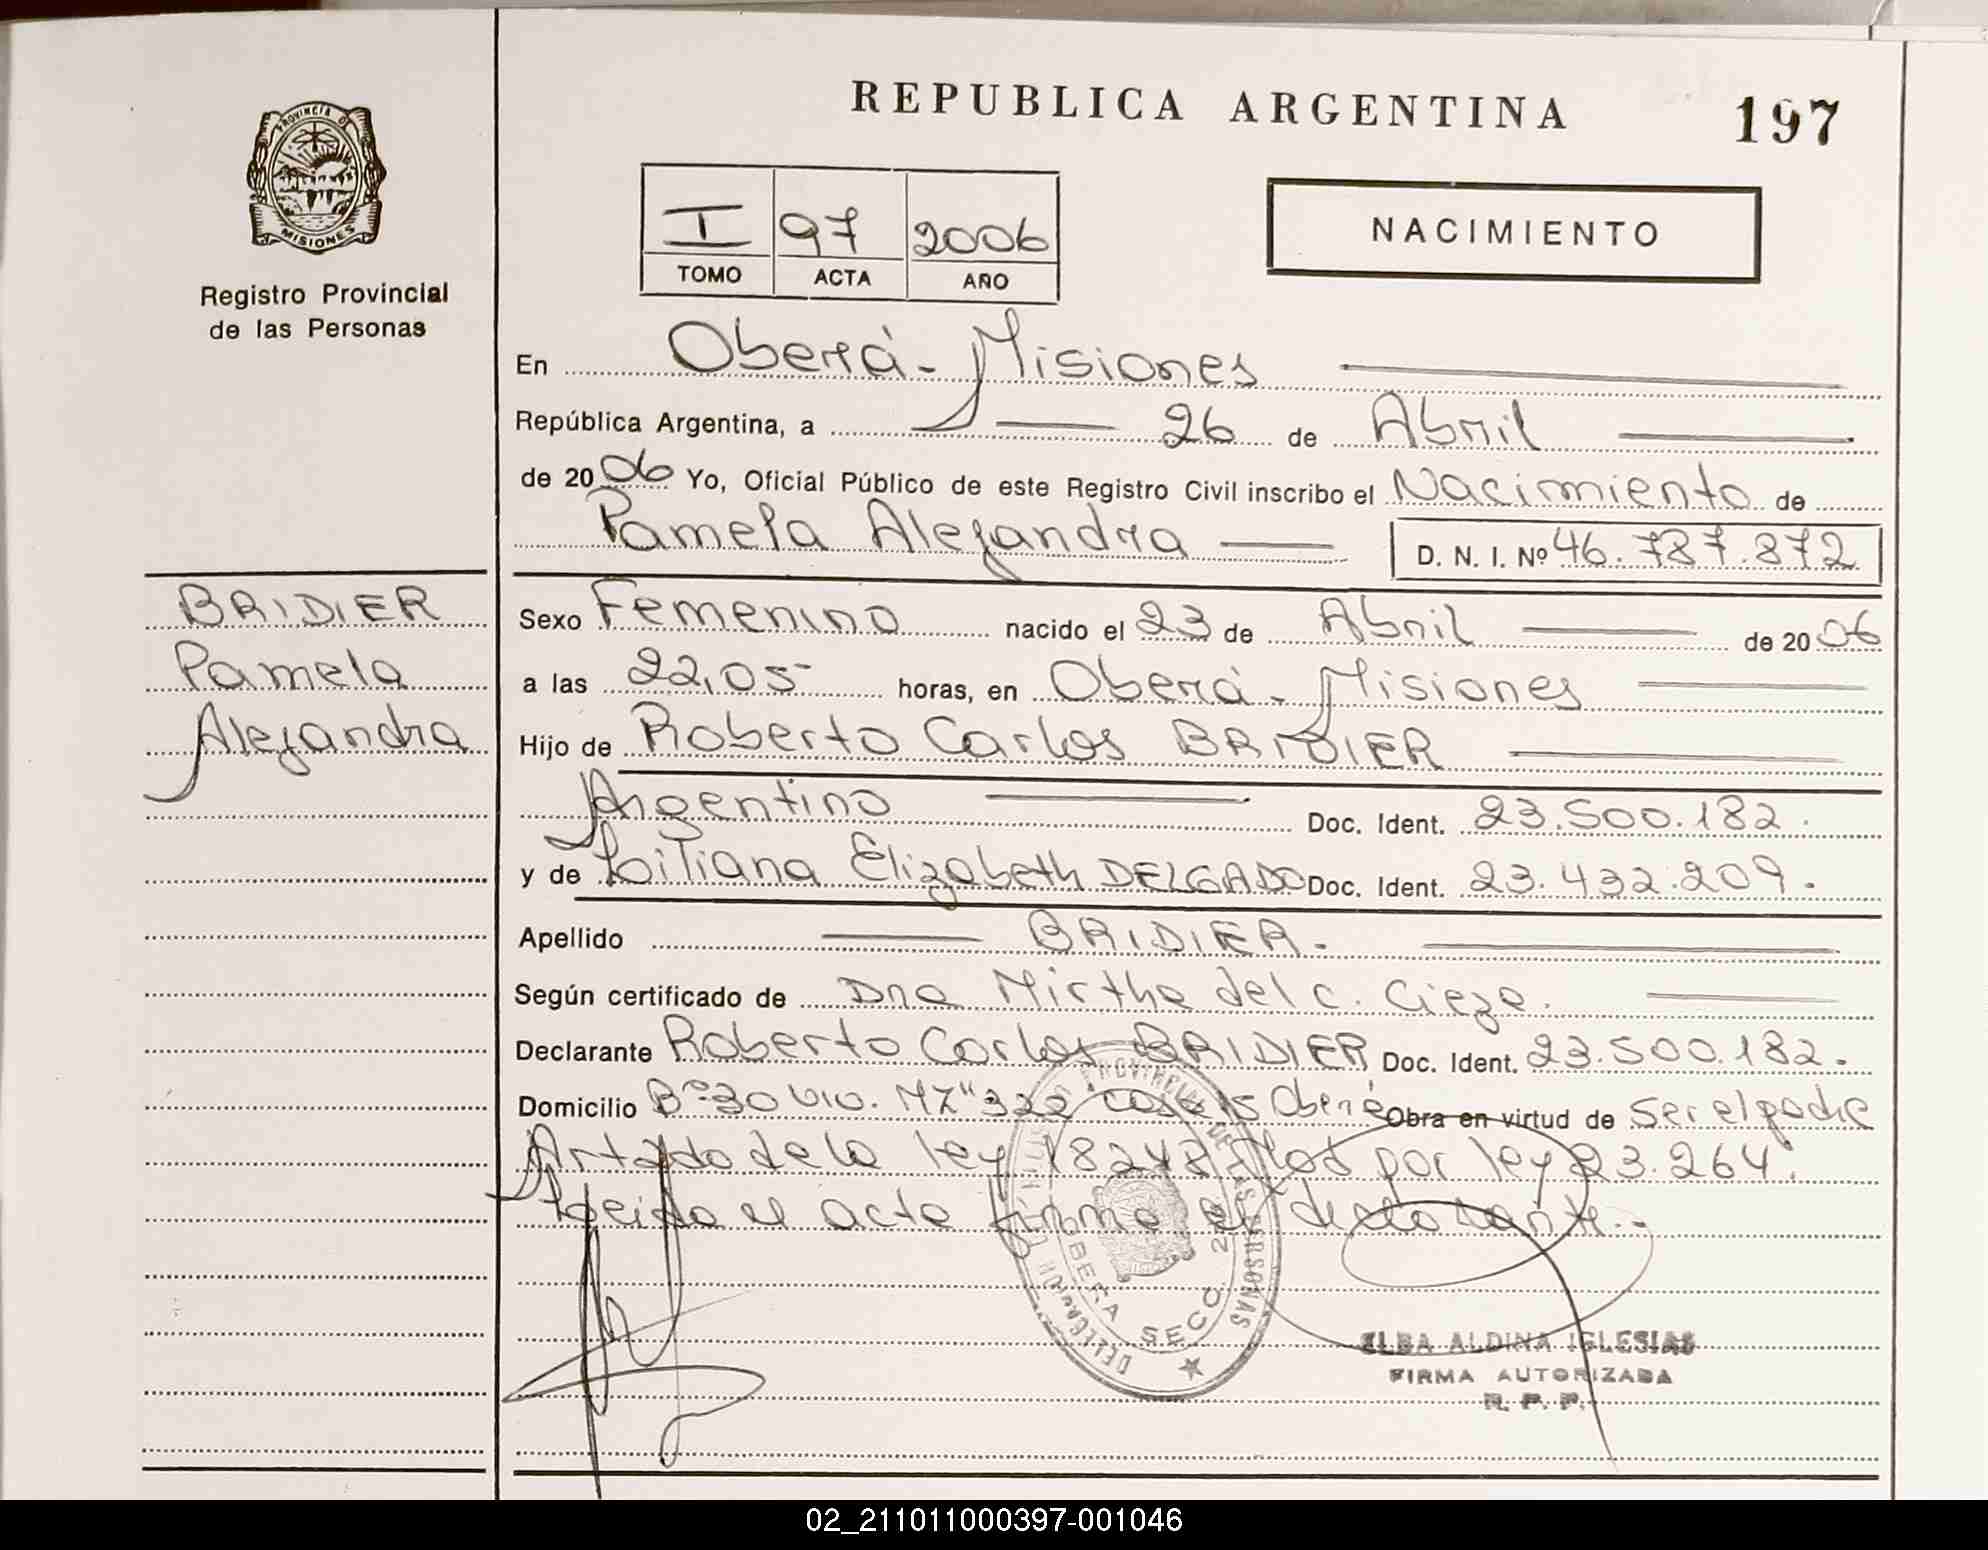 REPUBLICA ARGENTINA
197
PROVINCIA DE
MISIONES
Registro Provincial
de las Personas
I 97 2006
TOMO ACTA AÑO
NACIMIENTO
En Oberá - Misiones
República Argentina, a 26 de Abril
de 2006 Yo, Oficial Público de este Registro Civil inscribo el Nacimiento de
Pamela Alejandra D. N. I. Nº 46.787.872
BRIDIER
Pamela
Alejandra
Sexo Femenino nacido el 23 de Abril de 2006
a las 22,05 horas, en Oberá - Misiones
Hijo de Roberto Carlos BRIDIER
Argentino Doc. Ident. 23.500.182.
y de Liliana Elizabeth DELGADO Doc. Ident. 23.432.209.
Apellido BRIDIER.
Según certificado de Dra Mirtha del C. Cieza.
Declarante Roberto Carlos BRIDIER Doc. Ident. 23.500.182.
Domicilio Bº 30 Viv. Mz "322 casa 15 Oberá Obra en virtud de Ser el padre
de la ley 18248 por ley 23.264.
Leida el acta firma el declarante.-
PROVINCIAL DE LAS PERSONAS
OBERA SECC. 2
ELBA ALDINA IGLESIAS
FIRMA AUTORIZADA
R. P. P.
02_211011000397-001046